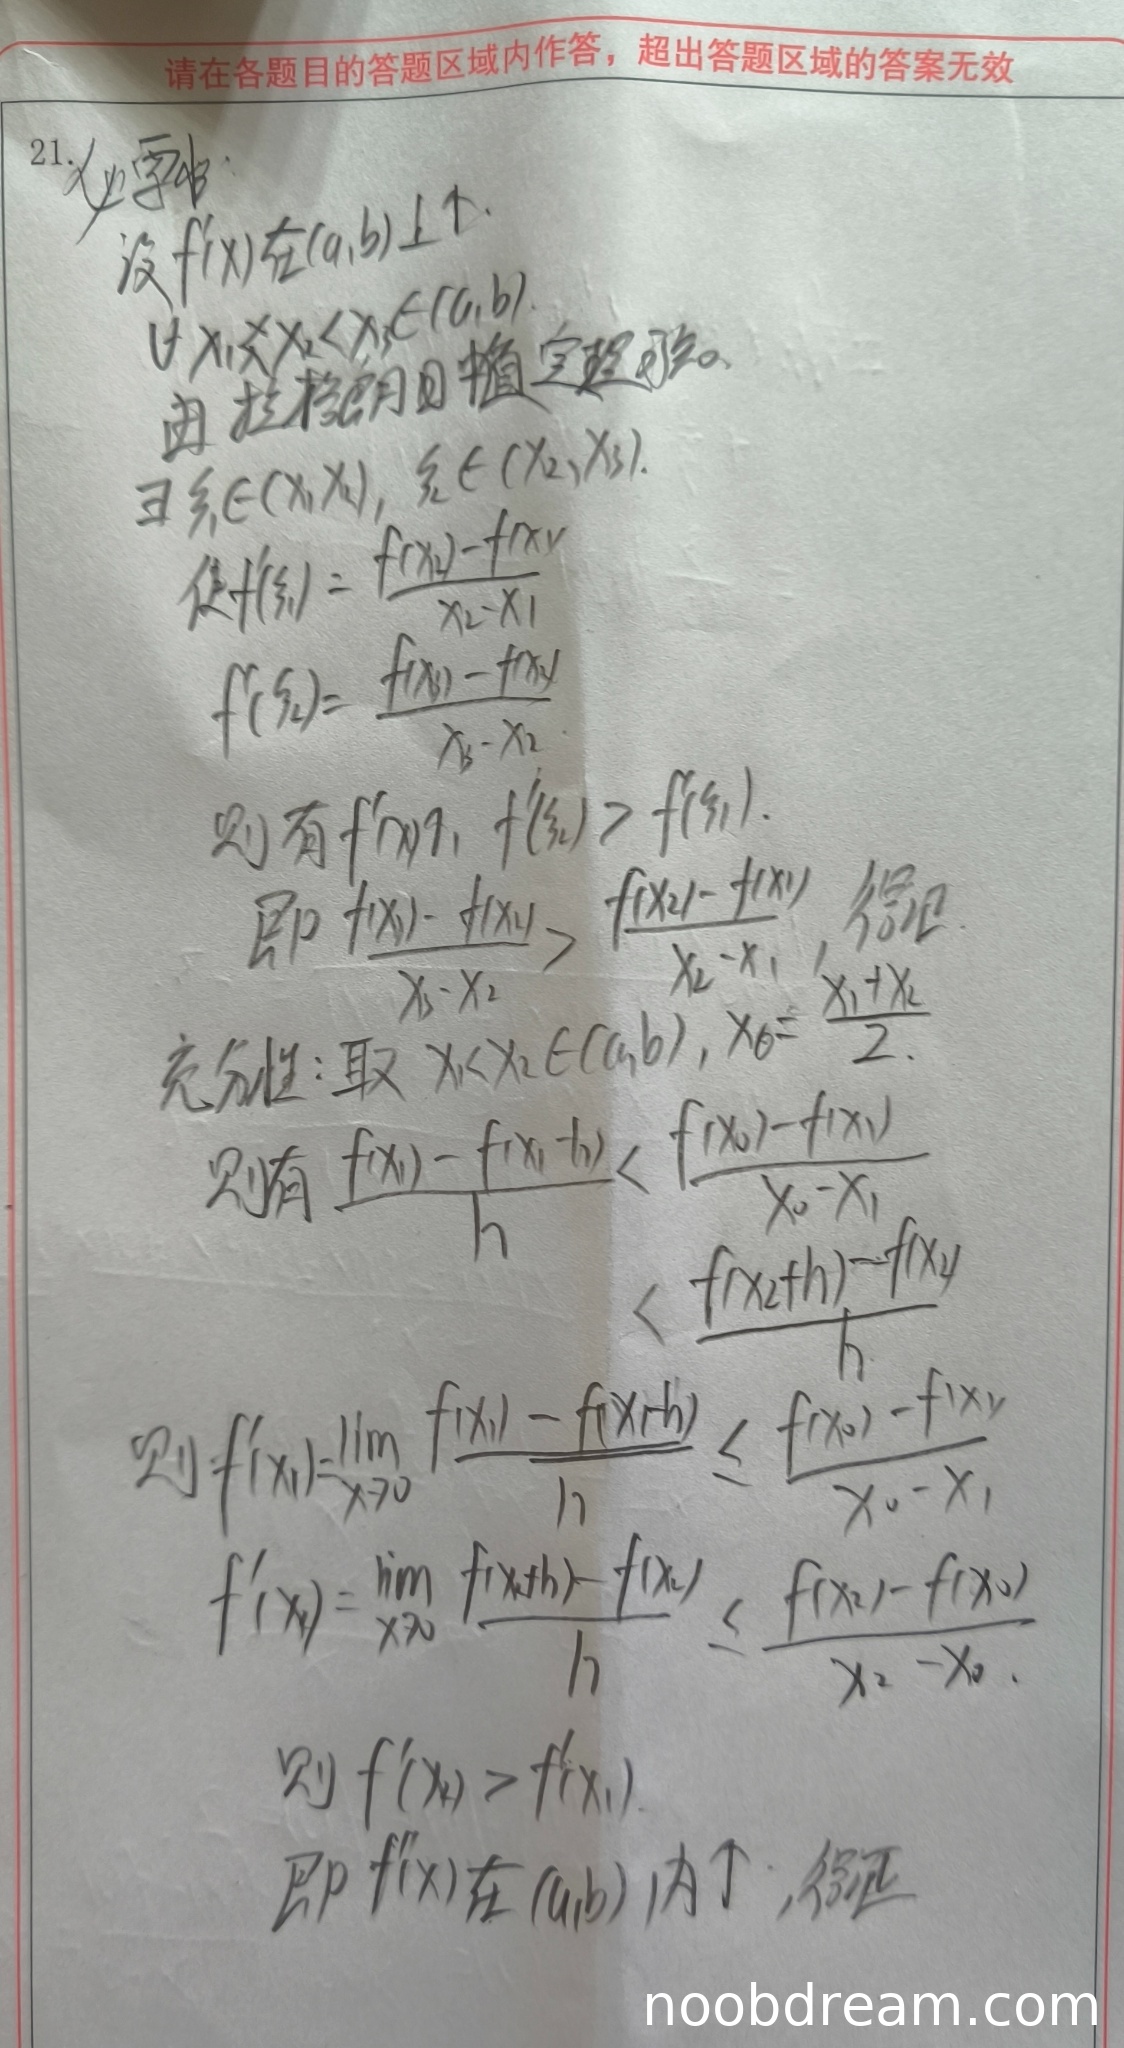 请在各题目的答题区域内作答，超出答题区域的答案无效
21.
必要性:
设 f'(x) 在(a,b)上↑.
∀ x₁<x₂<x₃∈(a,b).
由拉格朗日中值定理
∃ξ₁∈(x₁,x₂), ξ₂∈(x₂,x₃).
使f'(ξ₁) = (f(x₂)-f(x₁))/(x₂-x₁)
f'(ξ₂) = (f(x₃)-f(x₂))/(x₃-x₂)
则有 f'(x)↑, f'(ξ₂) > f'(ξ₁).
即 (f(x₃)-f(x₂))/(x₃-x₂) > (f(x₂)-f(x₁))/(x₂-x₁), 得证.
充分性: 取 x₁<x₂∈(a,b), x₀=(x₁+x₂)/2.
则有 (f(x₁)-f(x₁-h))/h < (f(x₀)-f(x₁))/(x₀-x₁)
< (f(x₂+h)-f(x₂))/h
则 f'(x₁)=lim x→0 (f(x₁)-f(x₁-h))/h ≤ (f(x₀)-f(x₁))/(x₀-x₁)
f'(x₂)=lim x→0 (f(x₂+h)-f(x₂))/h ≤ (f(x₂)-f(x₀))/(x₂-x₀).
则 f'(x₂) > f'(x₁).
即 f'(x) 在 (a,b) 内↑, 得证
noobdream.com